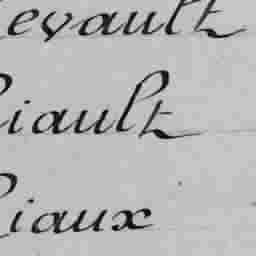 evault
iault
iaux